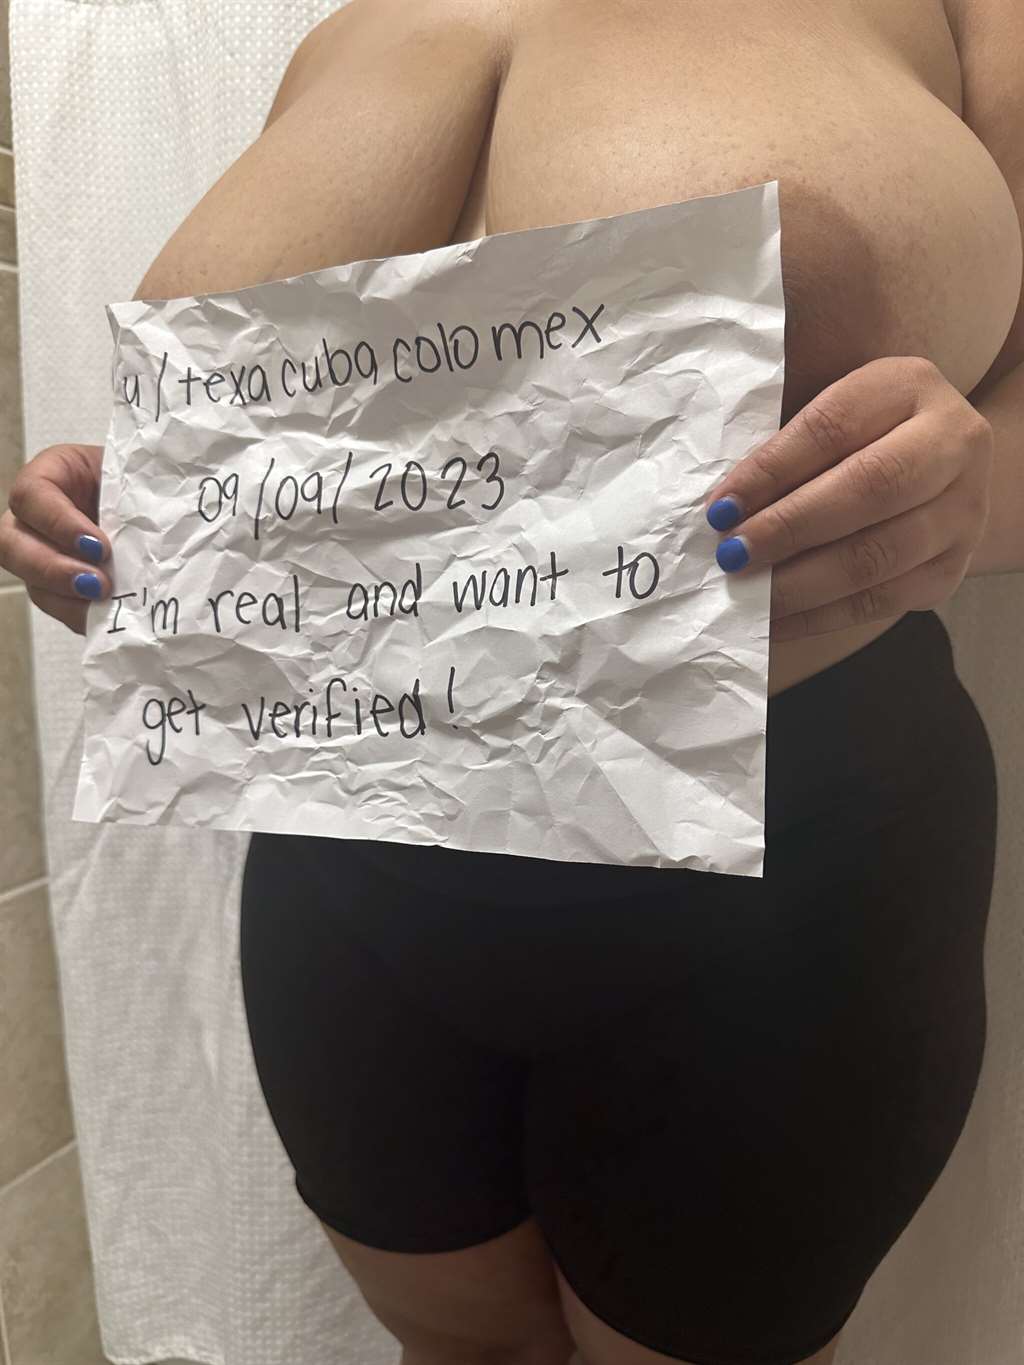 u/texacubacolomex
09/09/2023
I'm real and want to
get verified!